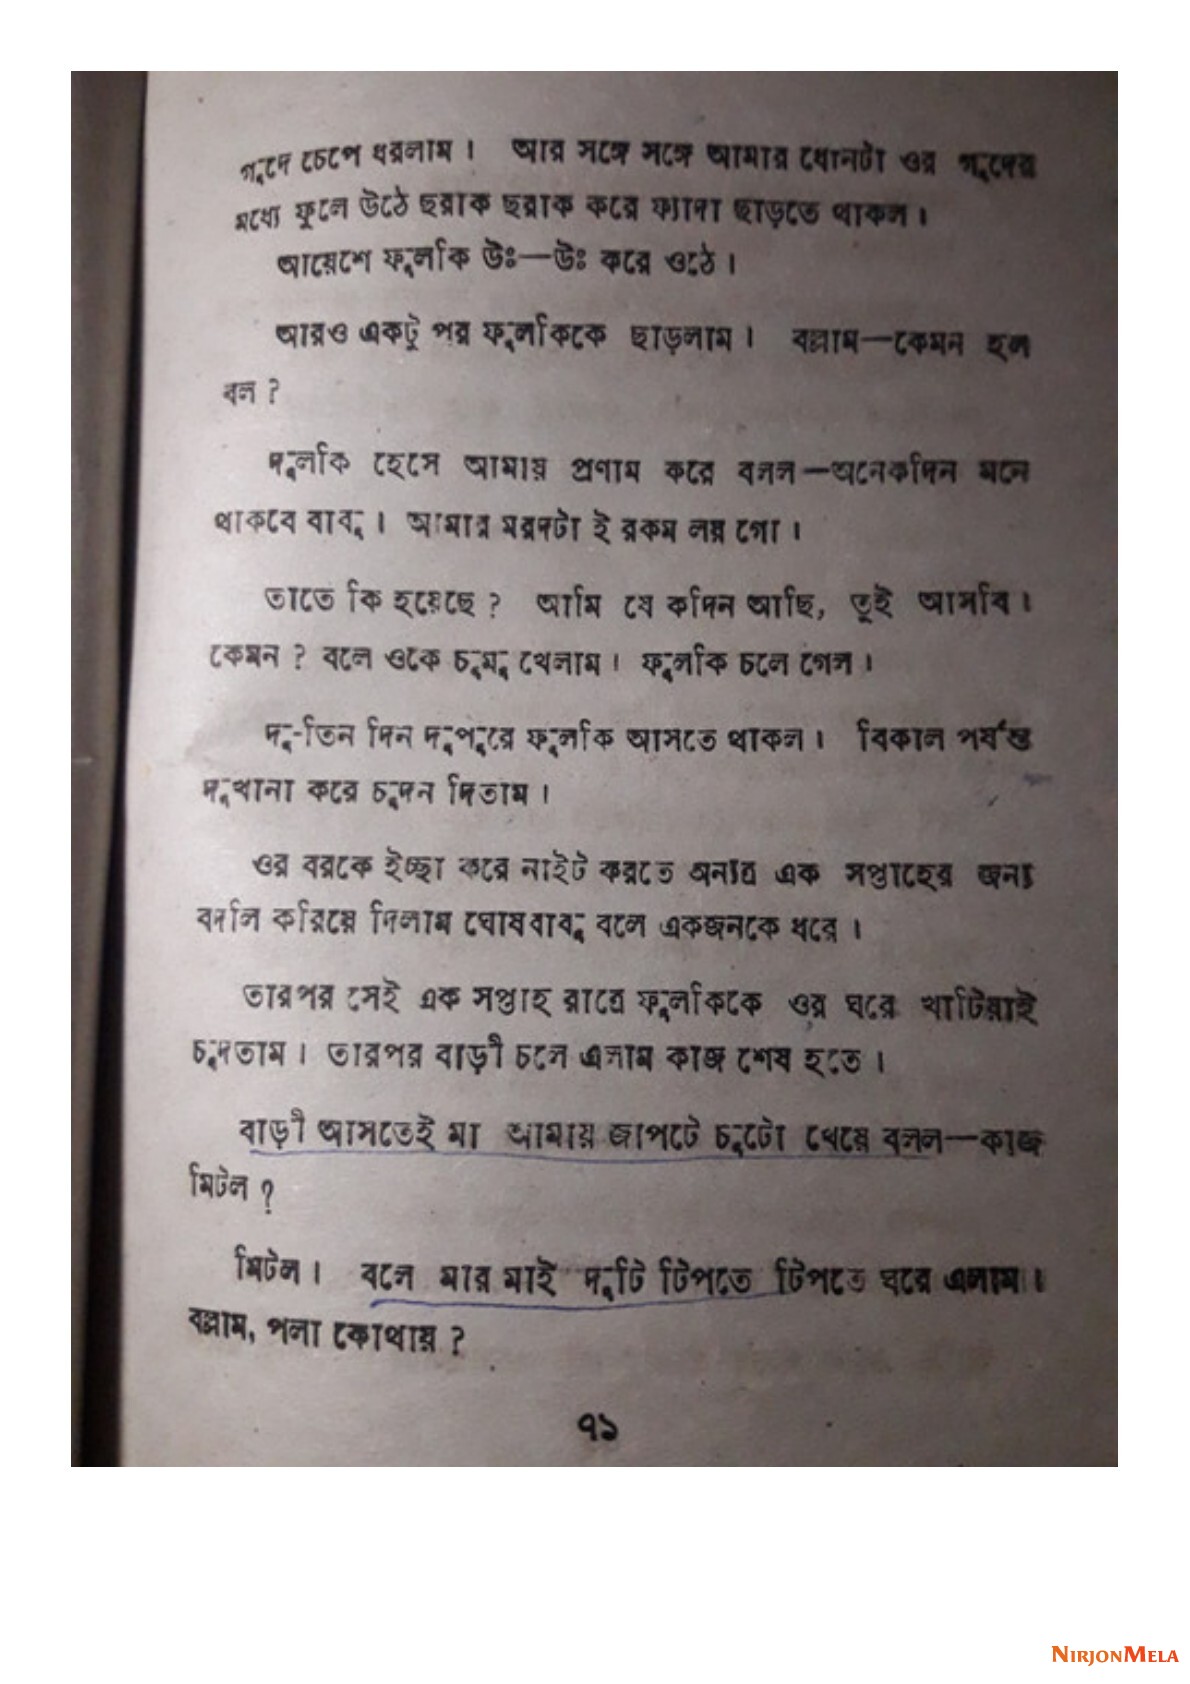 গুদে চেপে ধরলাম। আর সঙ্গে সঙ্গে আমার ধোনটা ওর গুদের
মধ্যে ফুলে উঠে ছরাক ছরাক করে ফ্যাদা ছাড়তে থাকল।
আয়েশে ফুলকি উঃ—উঃ করে ওঠে।
আরও একটু পর ফুলকিকে ছাড়লাম। বল্লাম—কেমন হল
বল ?
ফুলকি হেসে আমায় প্রণাম করে বলল—অনেকদিন মনে
থাকবে বাবু। আমার মরদটা ই রকম লয় গো।
তাতে কি হয়েছে ? আমি যে কদিন আছি, তুই আসবি।
কেমন ? বলে ওকে চুমু খেলাম। ফুলকি চলে গেল।
দু-তিন দিন দুপুরে ফুলকি আসতে থাকল। বিকাল পর্যন্ত
দুখানা করে চুদন দিতাম।
ওর বরকে ইচ্ছা করে নাইট করতে অন্যত্র এক সপ্তাহের জন্য
বদলি করিয়ে দিলাম ঘোষবাবু বলে একজনকে ধরে।
তারপর সেই এক সপ্তাহ রাত্রে ফুলকিকে ওর ঘরে খাটিয়াই
চুদতাম। তারপর বাড়ী চলে এলাম কাজ শেষ হতে।
বাড়ী আসতেই মা আমায় জাপটে চুটো খেয়ে বলল—কাজ
মিটল ?
মিটল। বলে মার মাই দুটি টিপতে টিপতে ঘরে এলাম।
বল্লাম, পলা কোথায় ?
৭১
NIRJONMELA